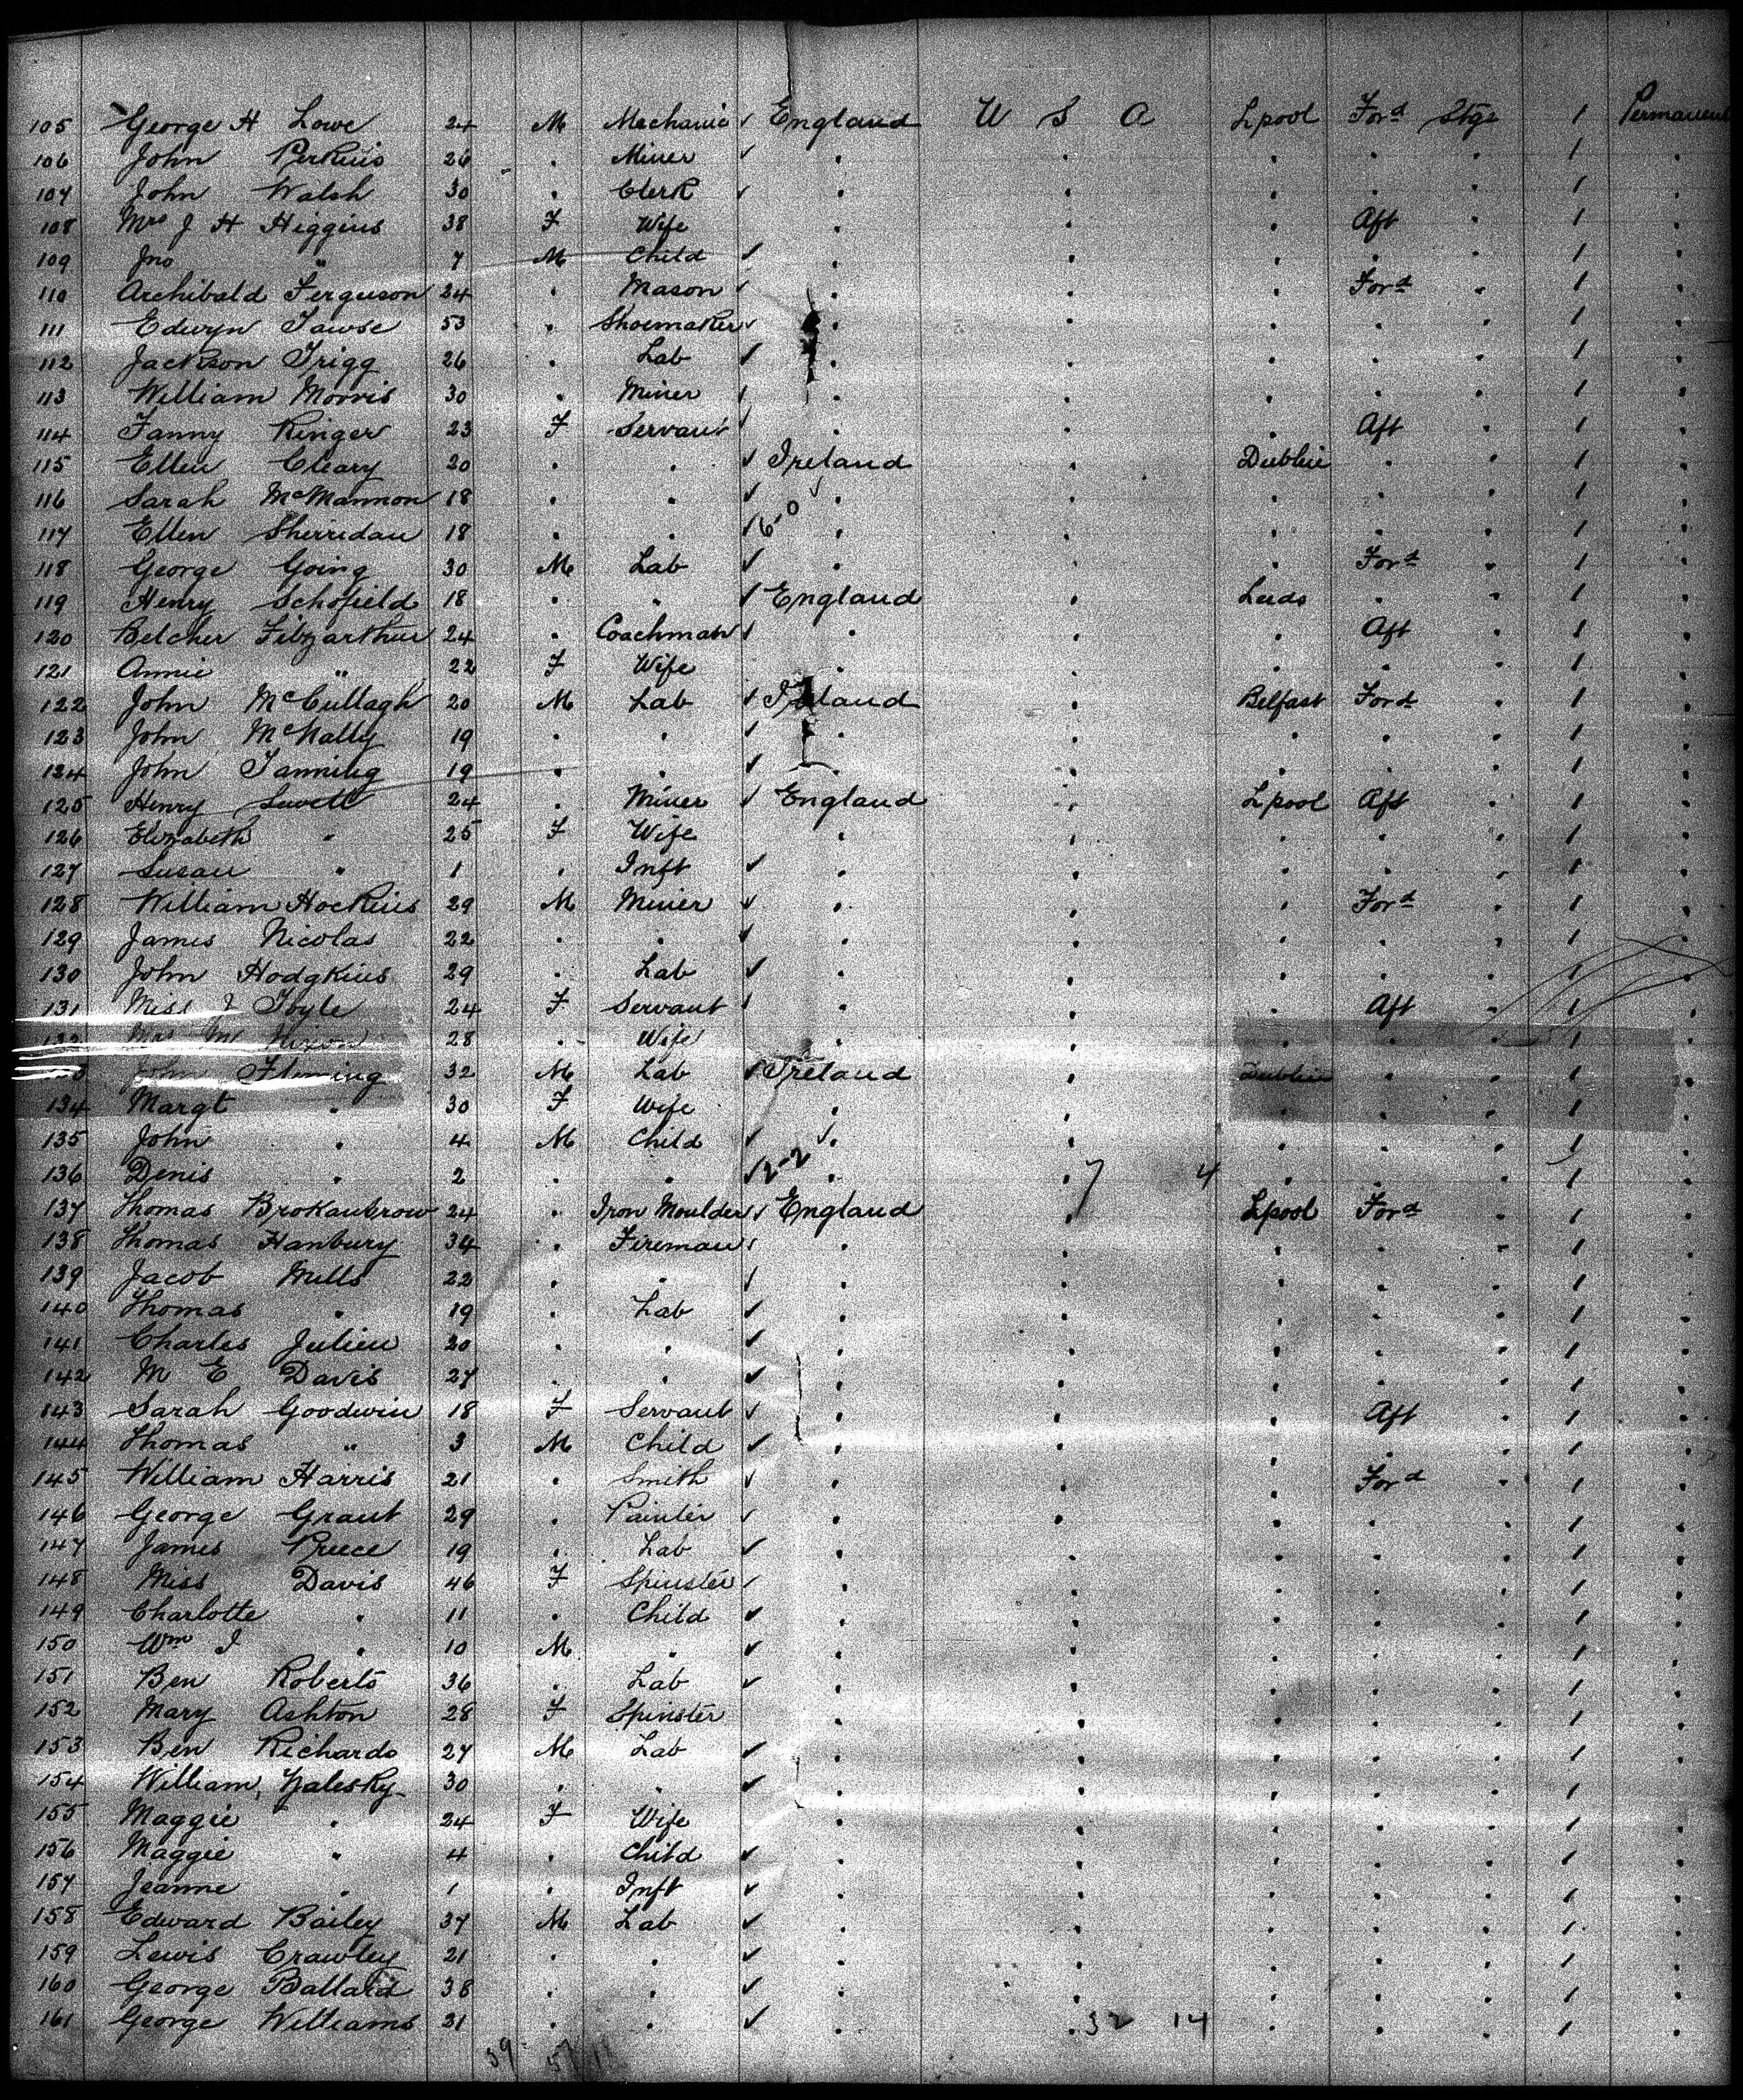 105 George H Lowe 24 M Mechanic ✓ England U S A Lpool Ford Stge 1 Permanent
106 John Perkins 26 . Miner ✓ . . . . . 1 .
107 John Walsh 30 . Clerk ✓ . . . . . 1 .
108 Mrs J H Higgins 38 F Wife . . . Aft . 1 .
109 Jno " 7 M Child ✓ . . . . . 1 .
110 Archibald Ferguson 24 . Mason ✓ . . . Ford . 1 .
111 Edwyn Tawse 53 . Shoemaker ✓ . . . . . 1 .
112 Jackson Trigg 26 . Lab ✓ . . . . . 1 .
113 William Morris 30 . Miner ✓ . . . . . 1 .
114 Fanny Ringer 23 F Servant ✓ . . . Aft . 1 .
115 Ellen Cleary 20 . . ✓ Ireland . Dublin . . 1 .
116 Sarah McMannon 18 . . ✓ . ✓ . . . . 1 .
117 Ellen Sherridan 18 . . ✓ 6-0 . . . . . 1 .
118 George Going 30 M Lab ✓ . . . Ford . 1 .
119 Henry Schofield 18 . " ✓ England . Leeds . . 1 .
120 Belcher Fitzarthur 24 . Coachman ✓ . . . Aft . 1 .
121 Annie " 22 F Wife . . . . . 1 .
122 John McCullagh 20 M Lab ✓ Ireland . Belfast Ford . 1 .
123 John McNally 19 . . ✓ . . . . . 1 .
124 John 19 . . ✓ . . . . . 1 .
125 Henry 24 . Miner ✓ England . Lpool Aft . 1 .
126 Elizabeth " 25 F Wife . . . . . 1 .
127 Susan " 1 . Inft ✓ . . . . . 1 .
128 William Hockins 29 M Miner ✓ . . . Ford . 1 .
129 James Nicolas 22 . . ✓ . . . . . 1 .
130 John Hodgkins 29 . Lab ✓ . . . . . 1 .
131 Miss 24 F Servant ✓ . . . Aft . 1 .
132 Mrs M Nixon 28 . Wife . . . . . 1 .
John Fleming 32 M Lab ✓ Ireland . Dublin . . 1 .
134 Margt " 30 F Wife . . . . . 1 .
135 John . 4 M Child ✓ ✓ . . . . . 1 .
136 Denis . 2 . " ✓ 2-2 . . 7 4 . . . 1 .
137 Thomas Brokanbrow 24 . Iron Moulder ✓ England . Lpool Ford . 1 .
138 Thomas Hanbury 34 . Fireman ✓ . . . . . 1 .
139 Jacob Mills 22 . . ✓ . . . . . 1 .
140 Thomas " 19 . Lab ✓ . . . . . 1 .
141 Charles Julien 20 . . ✓ . . . . . 1 .
142 M E Davis 27 . . ✓ . . . . . 1 .
143 Sarah Goodwin 18 F Servant ✓ . . . Aft . 1 .
144 Thomas " 3 M Child ✓ . . . . . 1 .
145 William Harris 21 . Smith ✓ . . . Ford . 1 .
146 George Grant 29 . Painter ✓ . . . . . 1 .
147 James Preece 19 . Lab ✓ . . . . . 1 .
148 Miss Davis 46 F Spinster ✓ . . . . . 1 .
149 Charlotte . 11 . Child ✓ . . . . . 1 .
150 Wm J . 10 M . ✓ . . . . . 1 .
151 Ben Roberts 36 . Lab ✓ . . . . . 1 .
152 Mary Ashton 28 F Spinster . . . . . 1 .
153 Ben Richards 27 M Lab ✓ . . . . . 1 .
154 William Zalesky 30 . " ✓ . . . . . 1 .
155 Maggie . 24 F Wife . . . . . 1 .
156 Maggie " 4 . Child ✓ . . . . . 1 .
157 Jeanne . 1 . Inft ✓ . . . . . 1 .
158 Edward Bailey 37 M Lab ✓ . . . . . 1 .
159 Lewis Crawley 21 . . ✓ . . . . . 1 .
160 George Ballard 38 . . ✓ . . . . . 1 .
161 George Williams 21 . . ✓ . . 32 14 . . . 1 .
39 57